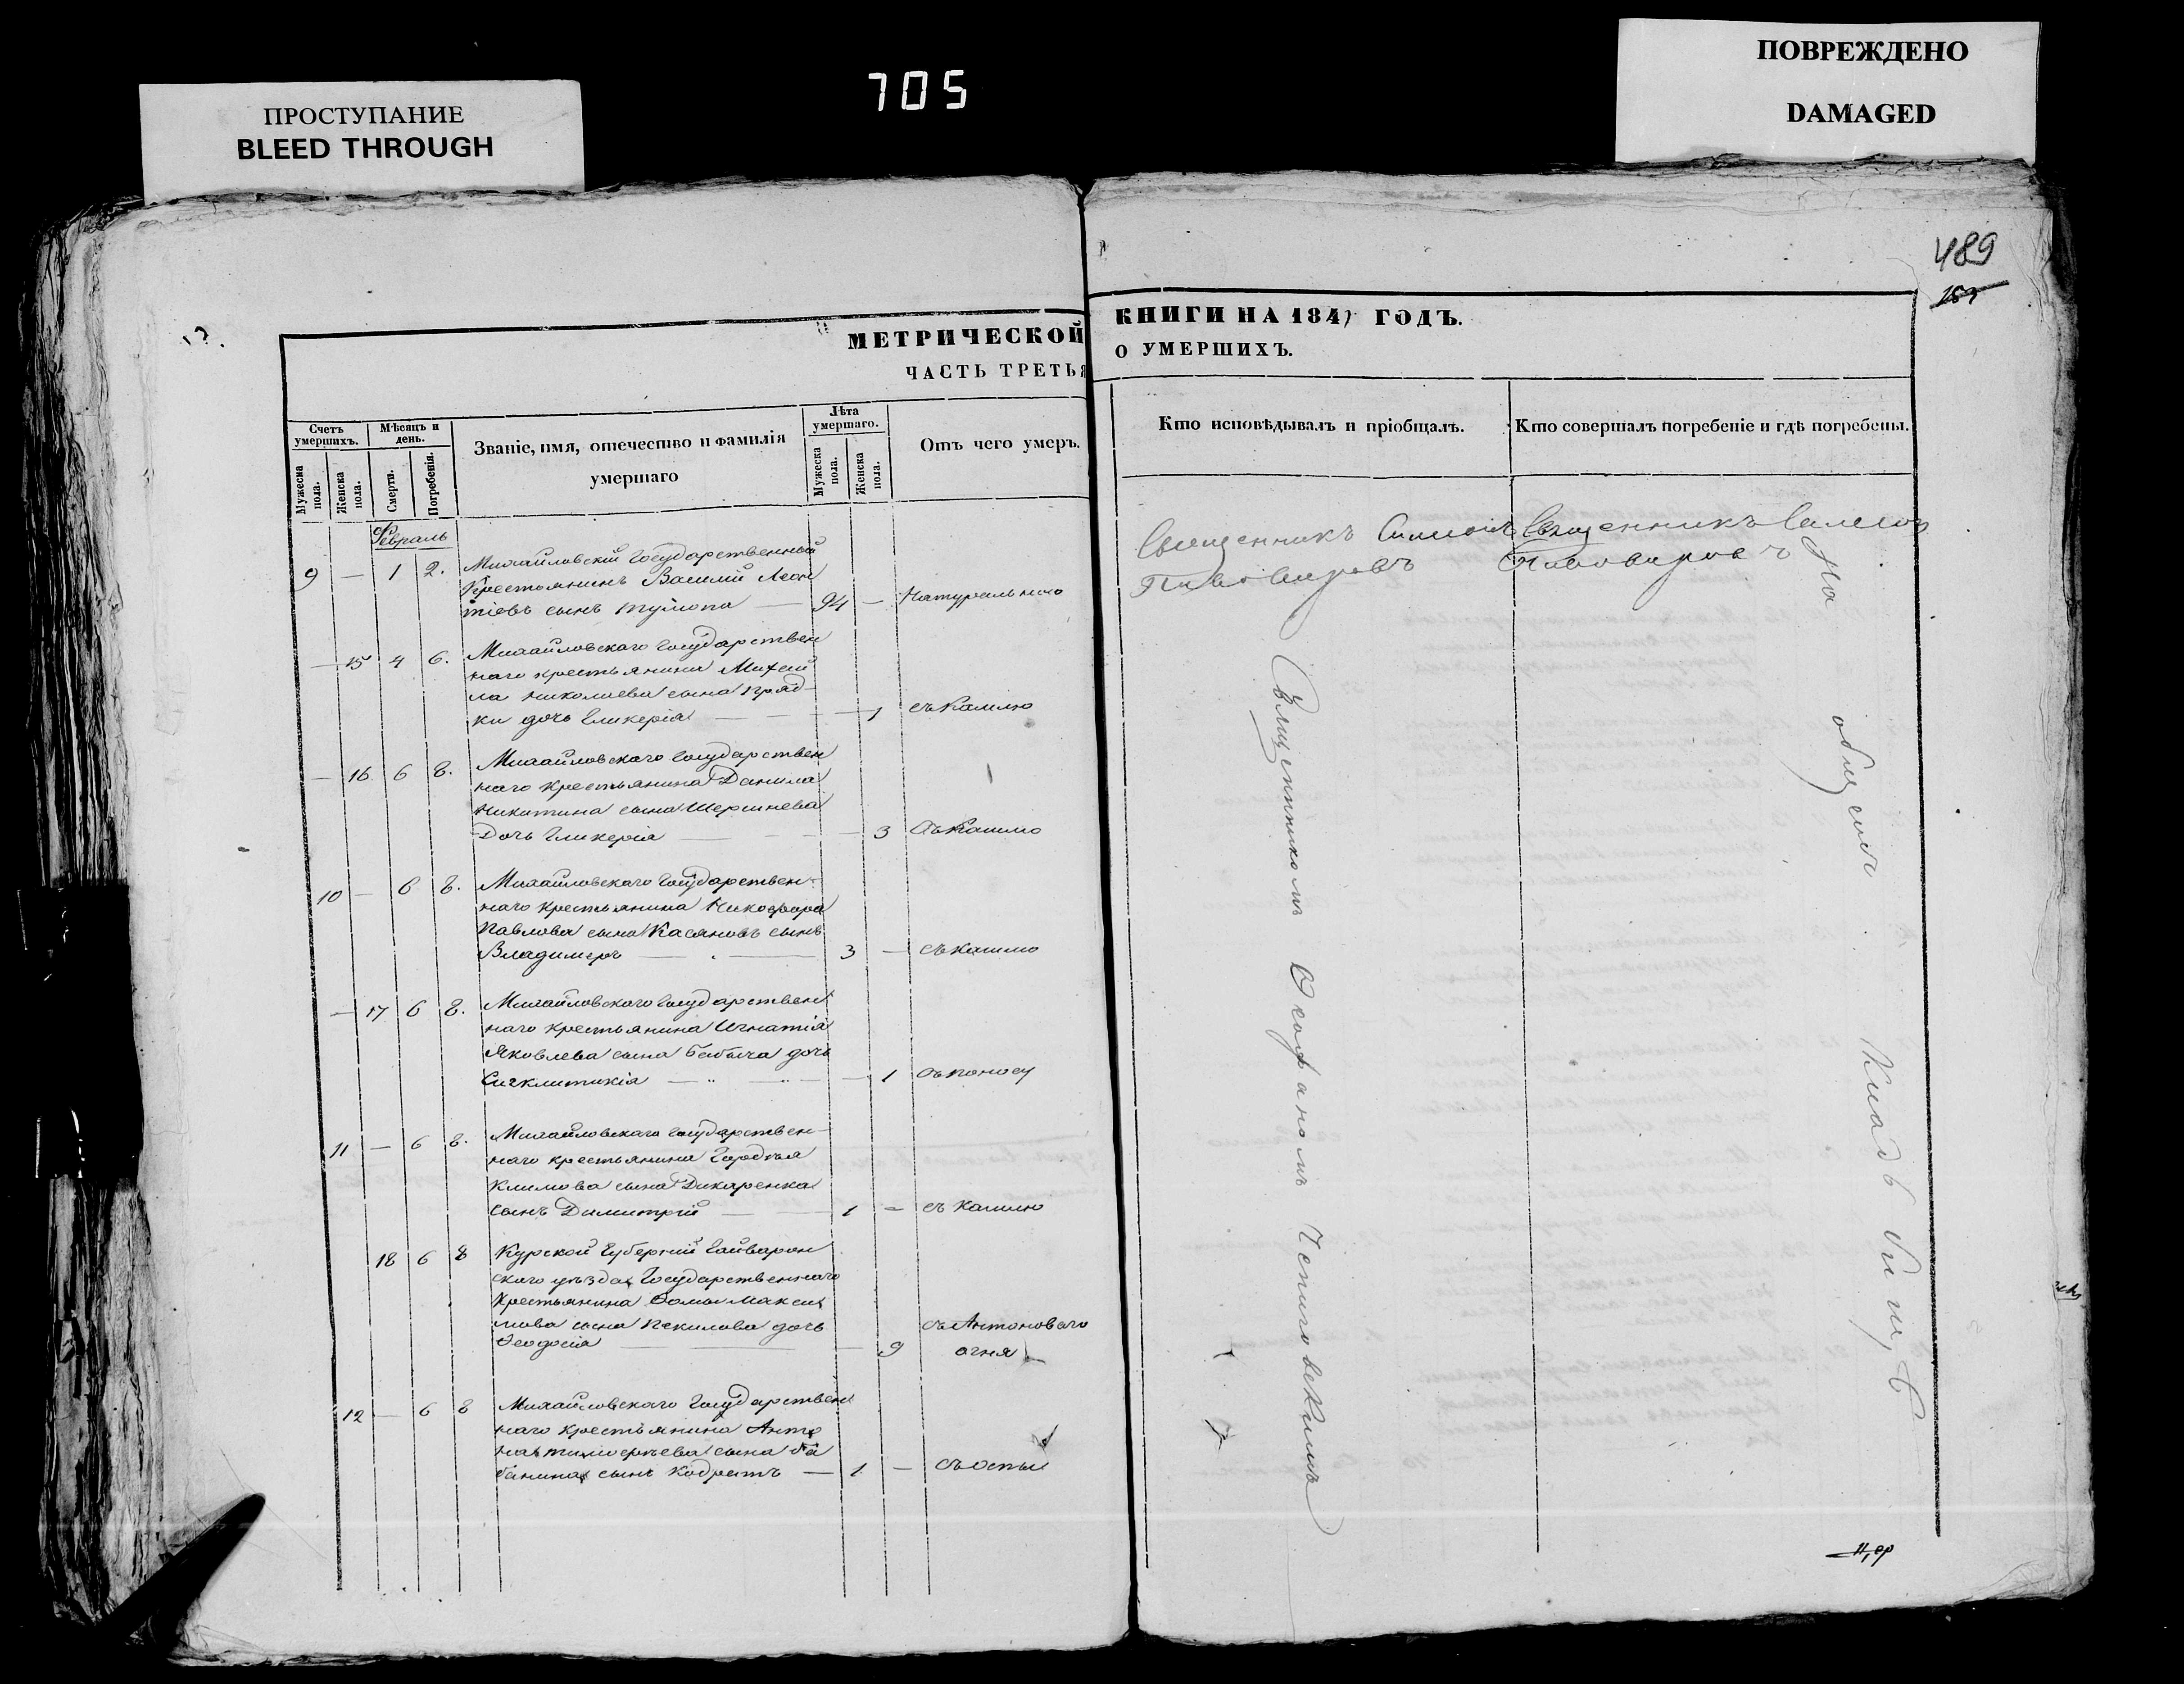 ПРОСТУПАНИЕ
BLEED THROUGH
705
ПОВРЕЖДЕНО
DAMAGED
489
МЕТРИЧЕСКОЙ КНИГИ НА 1847 ГОДЪ.
ЧАСТЬ ТРЕТЬЯ О УМЕРШИХЪ.
Счетъ умершихъ.
Мужеска пола.
Женска пола.
Мѣсяцъ и день.
Смерти.
Погребенія.
Званіе, имя, отечество и фамилія умершаго
Лѣта умершаго.
Мужеска пола.
Женска пола.
Отъ чего умеръ.
Кто исповѣдывалъ и пріобщалъ.
Кто совершалъ погребеніе и гдѣ погребены.
Февраль
9 — 1 2. Михайловскій Государственный
Крестьянинъ Василій Леон
тіевъ сынъ — 94 — Натурально
Священникъ Симеонъ
Пивоваровъ
Священникъ Симеон
Пивоваровъ
— 15 4 6. Михайловскаго Государствен
наго крестьянина Михаи
ла Николаева сына Пряд-
ки дочь Гликерія — — 1 съ Кашлю
— 16 6 8. Михайловскаго Государствен
наго Крестьянина Данила
Никитина сына Шершнева
Дочь Гликерія — — 3 Съ Кашлю
10 — 6 8. Михайловскаго Государствен-
наго Крестьянина Никифора
Павлова сына Касяновъ сынъ
Владимеръ — 3 — съ кашлю
— 17 6 8. Михайловскаго Государствен
наго Крестьянина Игнатія
Яковлева сына Бабича дочь
Сигклитикія — — 1 съ поносу
11 — 6 8. Михайловскаго Государствен-
наго крестьянина Гордѣя
Климова сына Дикаренка
сынъ Димитрій — 1 — съ кашлю
18 6 8 Курской Губерніи Гайворон
скаго уѣзда Государственнаго
Крестьянина Фомы Макси
мова сына Пекилова дочь
Феодосія — — 9 съ Антоноваго
огня
12 — 6 8 Михайловскаго Государствен
наго крестьянина Анто
на сына
сынъ Кодратъ — 1 — съ оспы
Священникомъ Феофаномъ
На общемъ Кладбищѣ